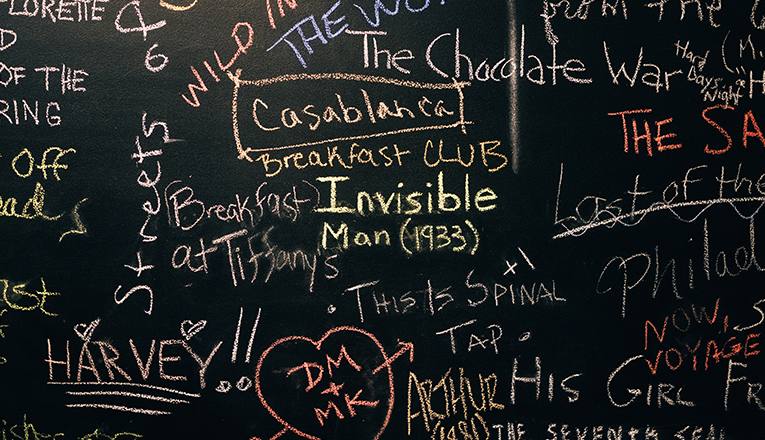 LORETTE
&
WILD IN
THE WO
From the
The Chocolate War
Hard
Days
Night
OF THE
RING
Casablanca
THE SA
Breakfast CLUB
OFF
Streets
(Breakfast)
at Tiffany's
Invisible
Man (1933)
Last of the
Philad
• THIS IS SPINAL
TAP •
NOW,
VOYAGE
HARVEY!!
DM
+
MK
ARTHUR
(1981)
HIS GIRL FR
THE SEVENTH SEAL